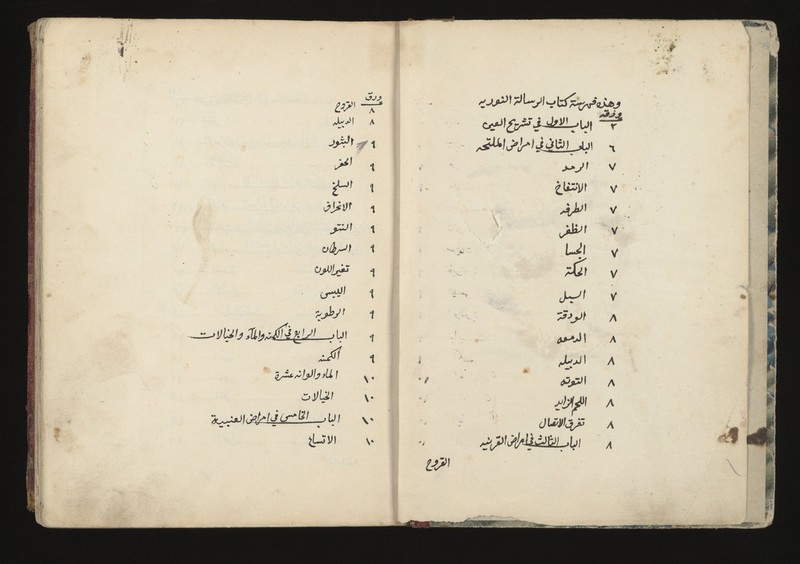 وهذه فهرسة كتاب الرسالة النوريه
ورقة
٢ الباب الاول في تشريح العين
٦ الباب الثاني في امراض الملتحمه
٧ الرمد
٧ الانتفاخ
٧ الطرفه
٧ الظفر
٧ الجسا
٧ الحكة
٧ السبل
٨ الودقة
٨ الدمعه
٨ الدبيله
٨ التوته
٨ اللحم الزايد
٨ تفرق الاتصال
٨ الباب الثالث في امراض القرنيه
القروح
ورق
٨ القروح
٨ الدبيله
٩ البثور
٩ الحفر
٩ السلخ
٩ الانخراق
٩ النتو
٩ السرطان
٩ تغير اللون
٩ اليبس
٩ الرطوبة
٩ الباب الرابع في الكمنه والمآء والخيالات
٩ الكمنه
١٠ الماء والوانه عشرة
١٠ الخيالات
١٠ الباب الخامس في امراض العنبية
١٠ الاتساع